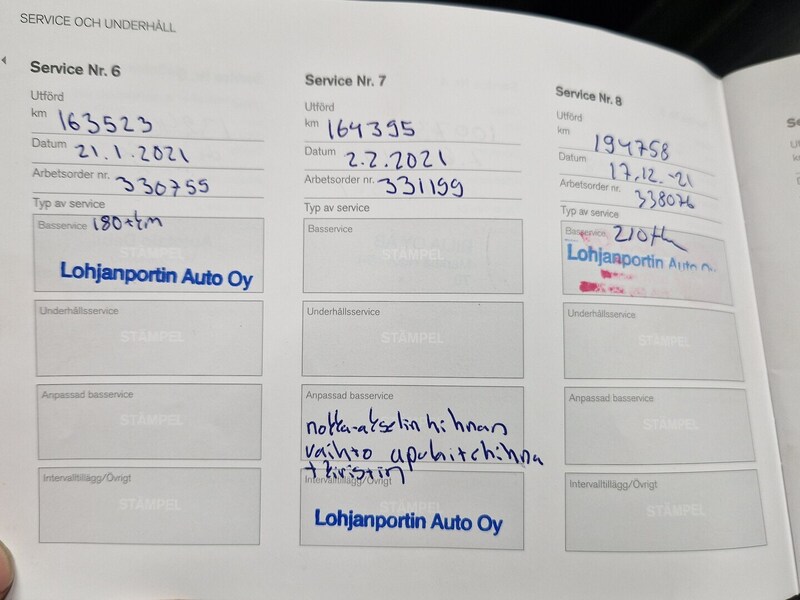 SERVICE OCH UNDERHÅLL
Service Nr. 6
Utförd
km 163523
Datum 21.1.2021
Arbetsorder nr. 330755
Typ av service
Basservice 180tkm
STÄMPEL
Lohjanportin Auto Oy
Underhållsservice
STÄMPEL
Anpassad basservice
STÄMPEL
Intervalltillägg/Övrigt
STÄMPEL
Service Nr. 7
Utförd
km 164395
Datum 2.2.2021
Arbetsorder nr. 331199
Typ av service
Basservice
STÄMPEL
Underhållsservice
STÄMPEL
Anpassad basservice
vaihto apulaitehihna
+ kiristin
Intervalltillägg/Övrigt
Lohjanportin Auto Oy
Service Nr. 8
Utförd
km 194758
Datum 17.12.-21
Arbetsorder nr. 338076
Typ av service
Basservice
Lohjanportin Auto Oy
Underhållsservice
STÄMPEL
Anpassad basservice
STÄMPEL
Intervalltillägg/Övrigt
STÄMPEL